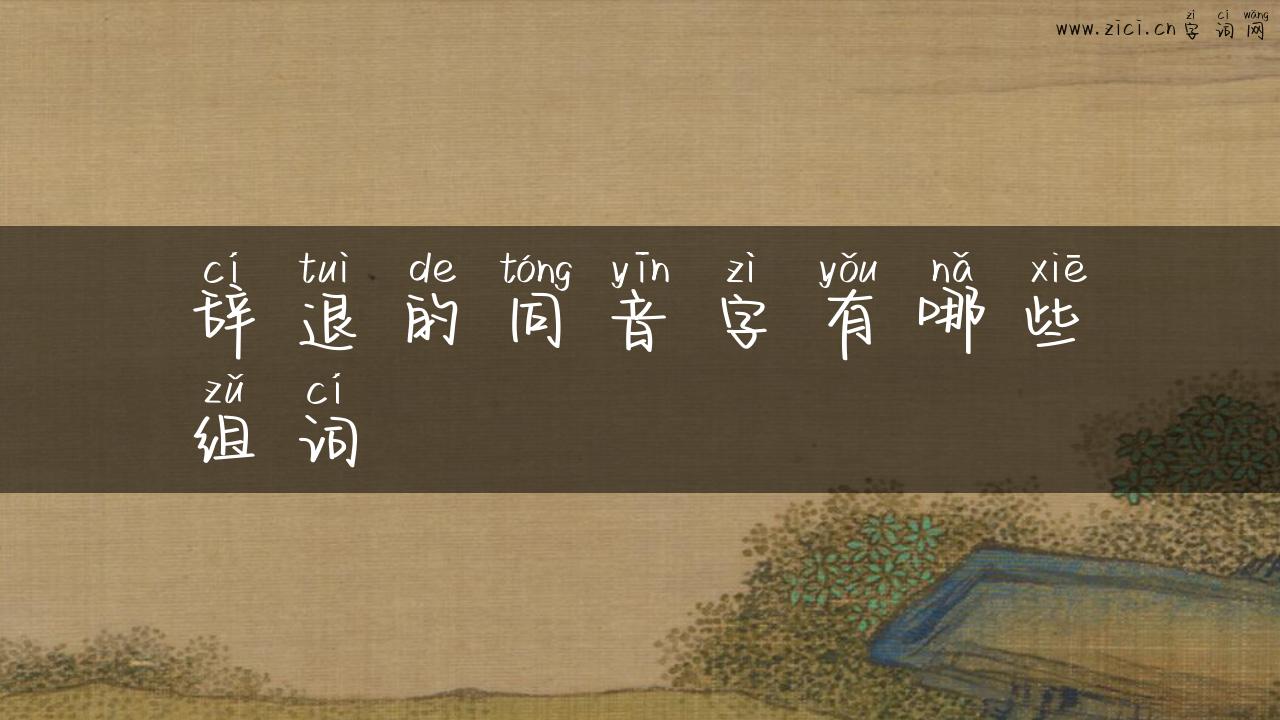 zì cí wǎng
www.zici.cn 字 词 网
cí tuì de tóng yīn zì yǒu nǎ xiē
辞 退 的 同 音 字 有 哪 些
zǔ cí
组 词